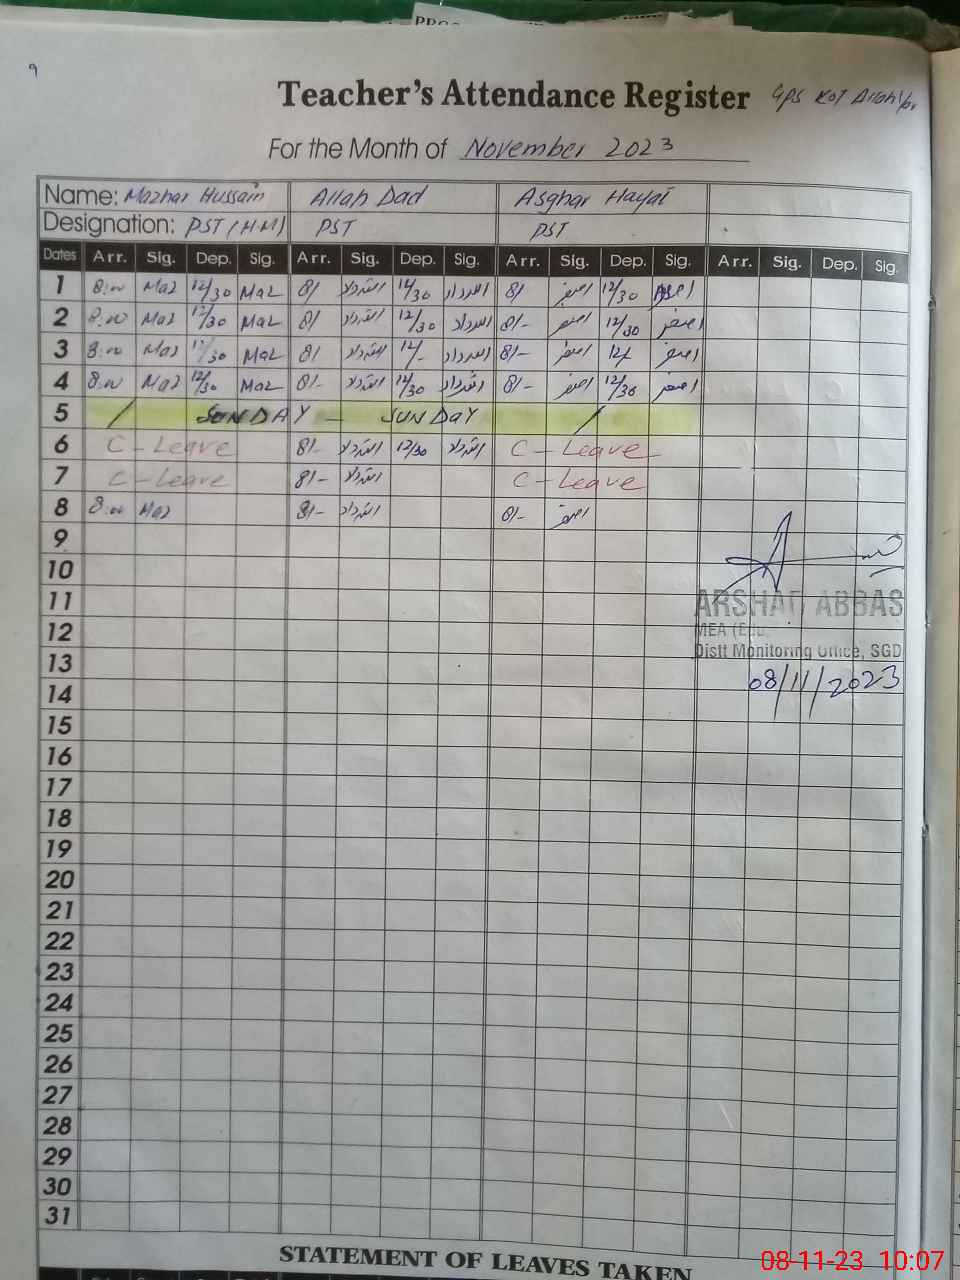 PROG
9
Teacher's Attendance Register GPS Kot Allah
For the Month of November 2023
Name: Mazhar Hussain Allah Dad Asghar Hayat
Designation: PST (H.M) PST PST
Dates Arr. Sig. Dep. Sig. Arr. Sig. Dep. Sig. Arr. Sig. Dep. Sig. Arr. Sig. Dep. Sig.
1 8:00 Maz 12/30 Maz 8/ اللہ داد 12/30 اللہ داد 8/ اصغر 12/30 اصغر
2 8:00 Maz 12/30 Maz 8/ اللہ داد 12/30 اللہ داد 8/- اصغر 12/30 اصغر
3 8:00 Maz 12/30 Maz 8/ اللہ داد 12/- اللہ داد 8/- اصغر 12/ اصغر
4 8:00 Maz 12/30 Maz 8/- اللہ داد 12/30 اللہ داد 8/- اصغر 12/30 اصغر
5 / SUNDAY — SUNDAY /
6 C-Leave 8/- اللہ داد 12/30 اللہ داد C-Leave
7 C-Leave 8/- اللہ داد C-Leave
8 8:00 Maz 8/- اللہ داد 8/- اصغر
9
10
11 ARSHAD ABBAS
12 MEA (Edu
13 Distt Monitoring Office, SGD
14 08/11/2023
15
16
17
18
19
20
21
22
23
24
25
26
27
28
29
30
31
STATEMENT OF LEAVES TAKEN
08-11-23 10:07